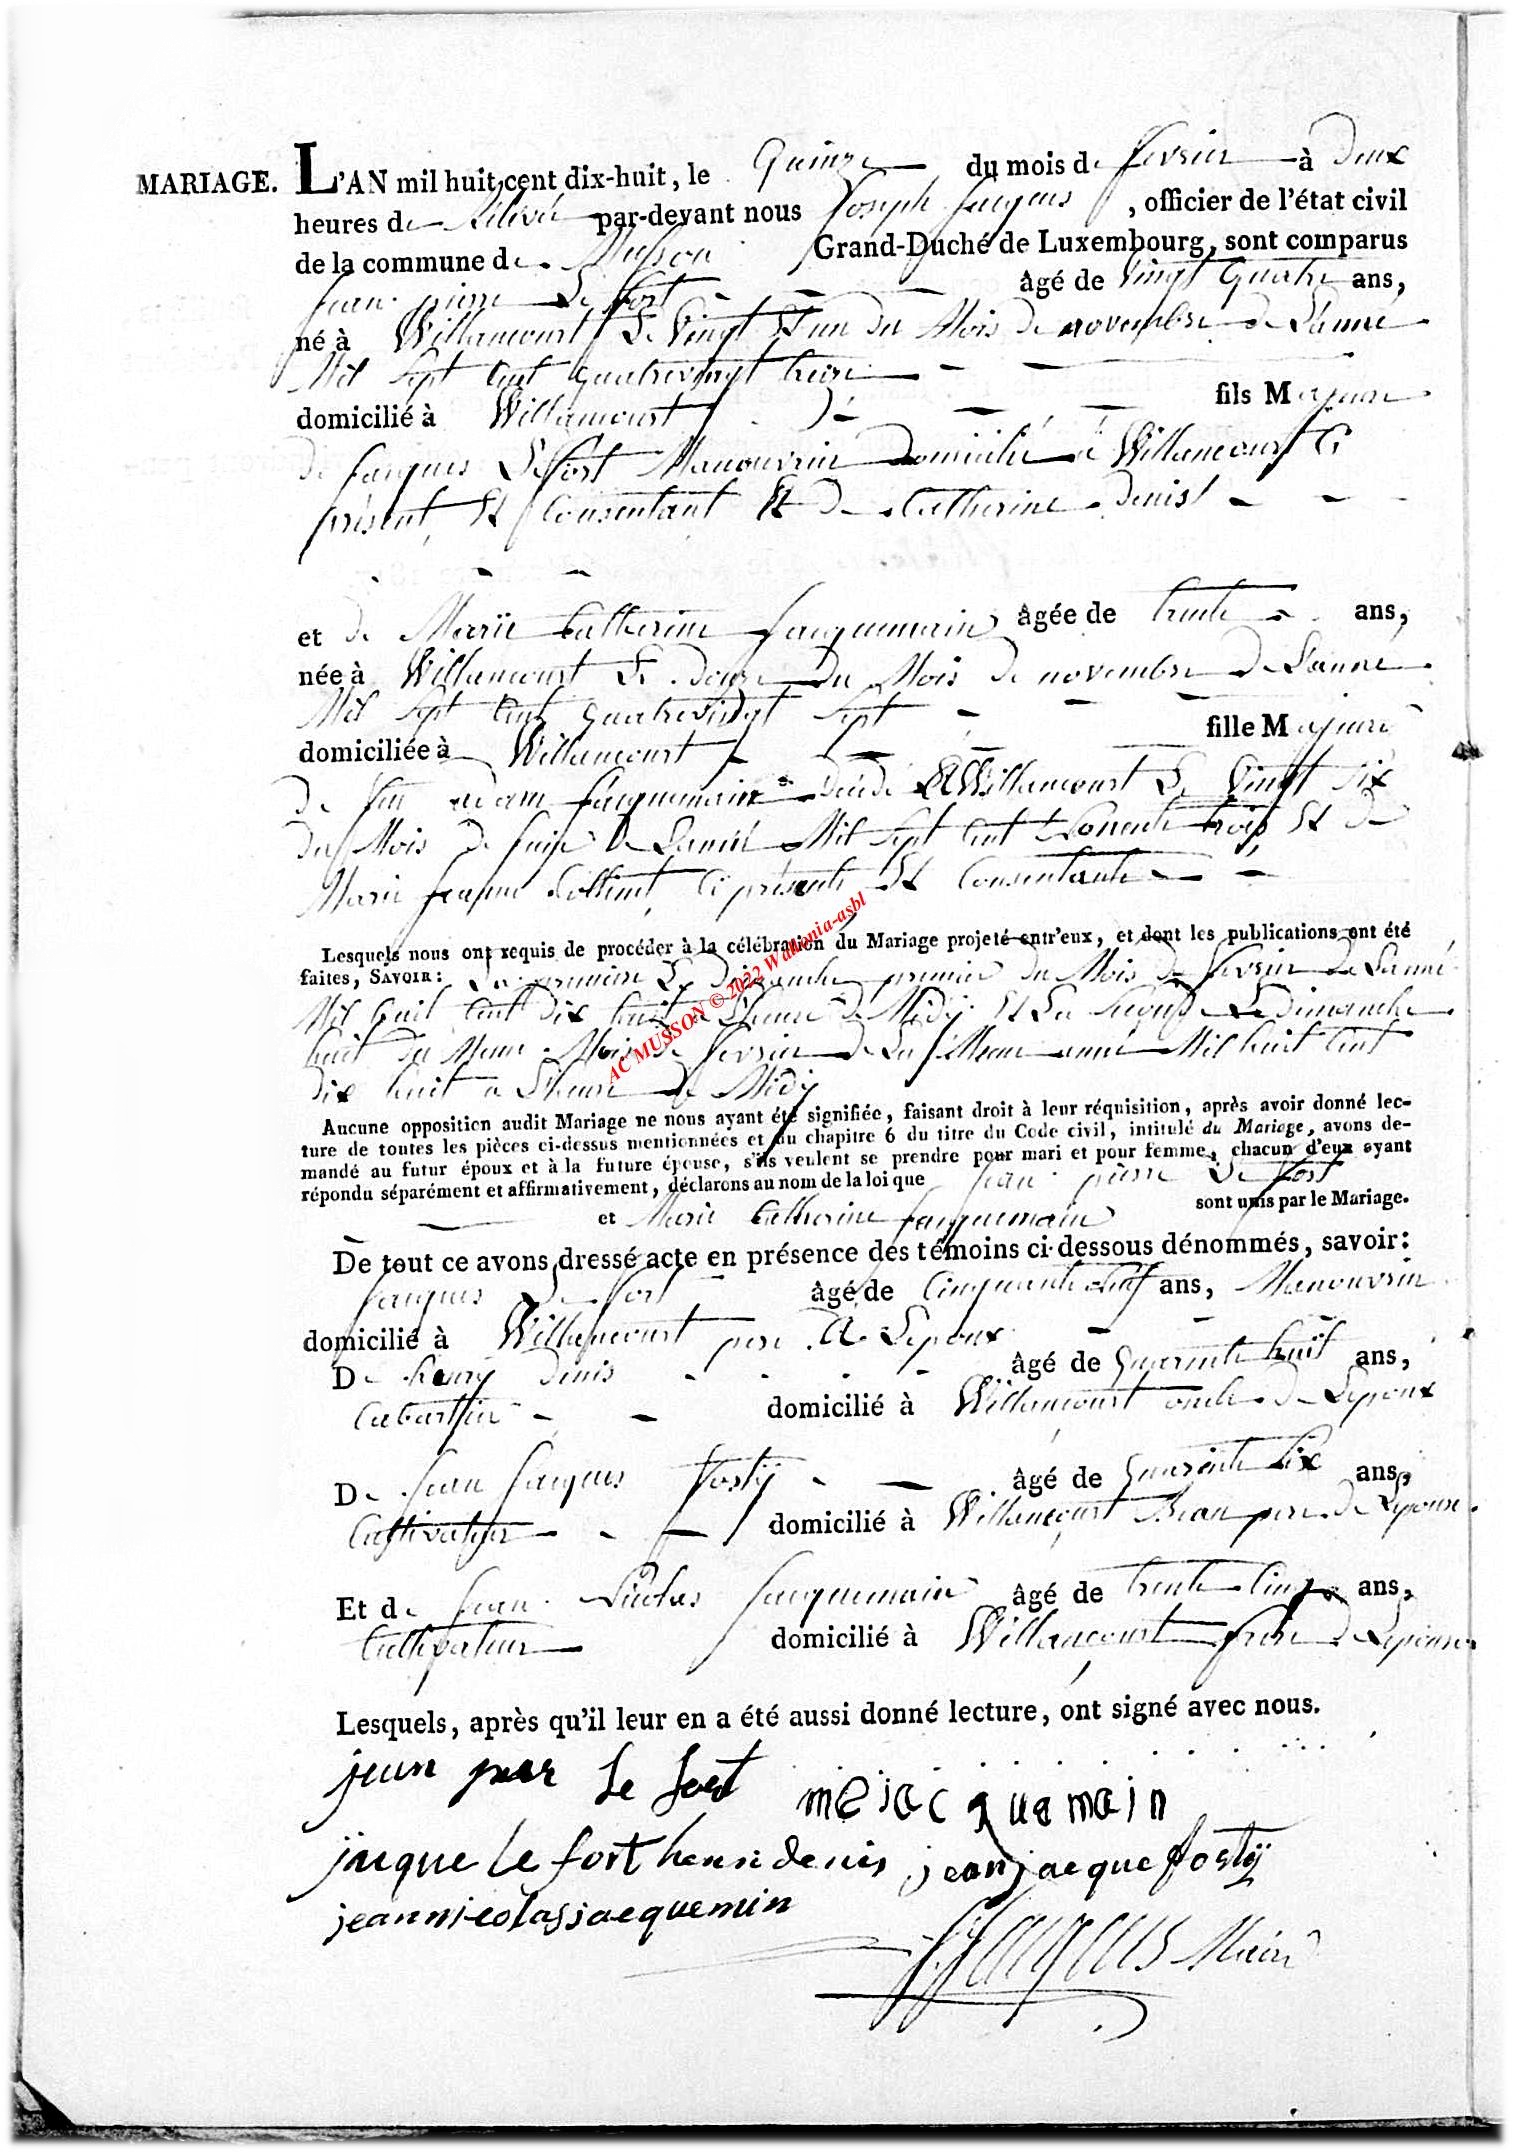 MARIAGE. L'AN mil huit cent dix-huit, le Quinze du mois de fevrier à Deux
heures de Relevée par-devant nous Joseph Jacques, officier de l'état civil
de la commune de Musson Grand-Duché de Luxembourg, sont comparus
Jean pierre Le fort âgé de Vingt Quatre ans,
né à Willancourt Le Vingt Et un du Mois de novembre de L'anné
Mil Sept Cent Quatrevingt treize
domicilié à Willancourt fils Majeur
de Jacques Le fort Manouvrier Domicilié à Willancourt Ci
présent Et Consentant Et de Catherine Denis
et de Marie Catherine Jacquemain âgée de trente ans,
née à Willancourt Le douze du Mois de novembre de L'anné
Mil Sept Cent Quatrevingt Sept
domiciliée à Willancourt fille Majeure
de feu adam Jacquemain décédé A Willancourt Le Vingt Six
du Mois de de L'anné Mil Sept Cent trois Et de
Marie Jeanne Ci présente Et Consentante
Lesquels nous ont requis de procéder à la célébration du Mariage projeté entr'eux, et dont les publications ont été
faites, SAVOIR: La premiere Le Dimanche premier du Mois de fevrier de L'anné
Mil huit Cent dix huit a L'heure de Midy Et La Le dimanche
huit du Meme Mois de fevrier de La Meme anné Mil huit Cent
dix huit a L'heure de Midy
Aucune opposition audit Mariage ne nous ayant été signifiée, faisant droit à leur réquisition, après avoir donné lec-
ture de toutes les pièces ci-dessus mentionnées et du chapitre 6 du titre du Code civil, intitulé du Mariage, avons de-
mandé au futur époux et à la future épouse, s'ils veulent se prendre pour mari et pour femme, chacun d'eux ayant
répondu séparément et affirmativement, déclarons au nom de la loi que Jean pierre Le fort
et Marie Catherine Jacquemain sont unis par le Mariage.
De tout ce avons dressé acte en présence des témoins ci-dessous dénommés, savoir:
Jacques Le fort âgé de Cinquante neuf ans, Manouvrier
domicilié à Willancourt pere de L'epoux
De henry Denis âgé de Quarente huit ans,
Cabartier domicilié à Willancourt oncle de L'epoux
De Jean Jacques fostÿ âgé de Quarente Six ans,
Cultivateur domicilié à Willancourt Beau pere de L'epouse
Et de Jean Nicolas Jacquemain âgé de trente Cinq ans,
Cultivateur domicilié à Willancourt frere de L'epouse
Lesquels, après qu'il leur en a été aussi donné lecture, ont signé avec nous.
jean pier le fort mcjacquemain
jacque le fort henri denis jean jacque fostÿ
jeannicolasjacquemin
JJacques Maire
AC MUSSON © 2022 Wallonia-asbl